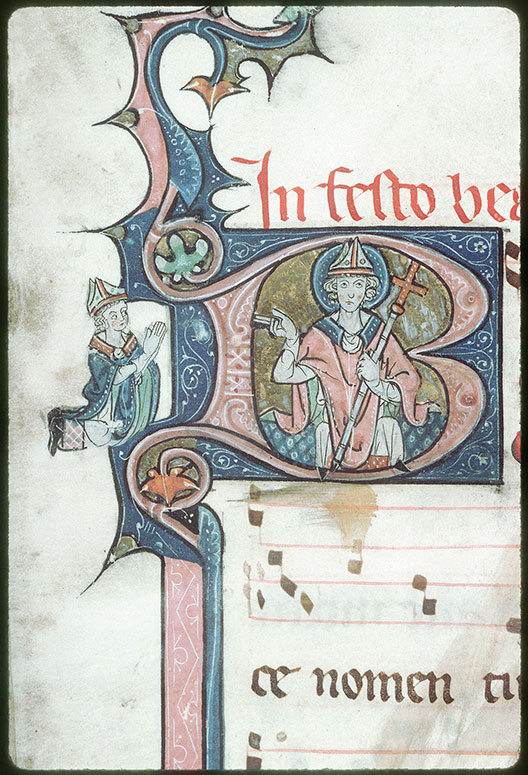 In festo bea
ce nomen